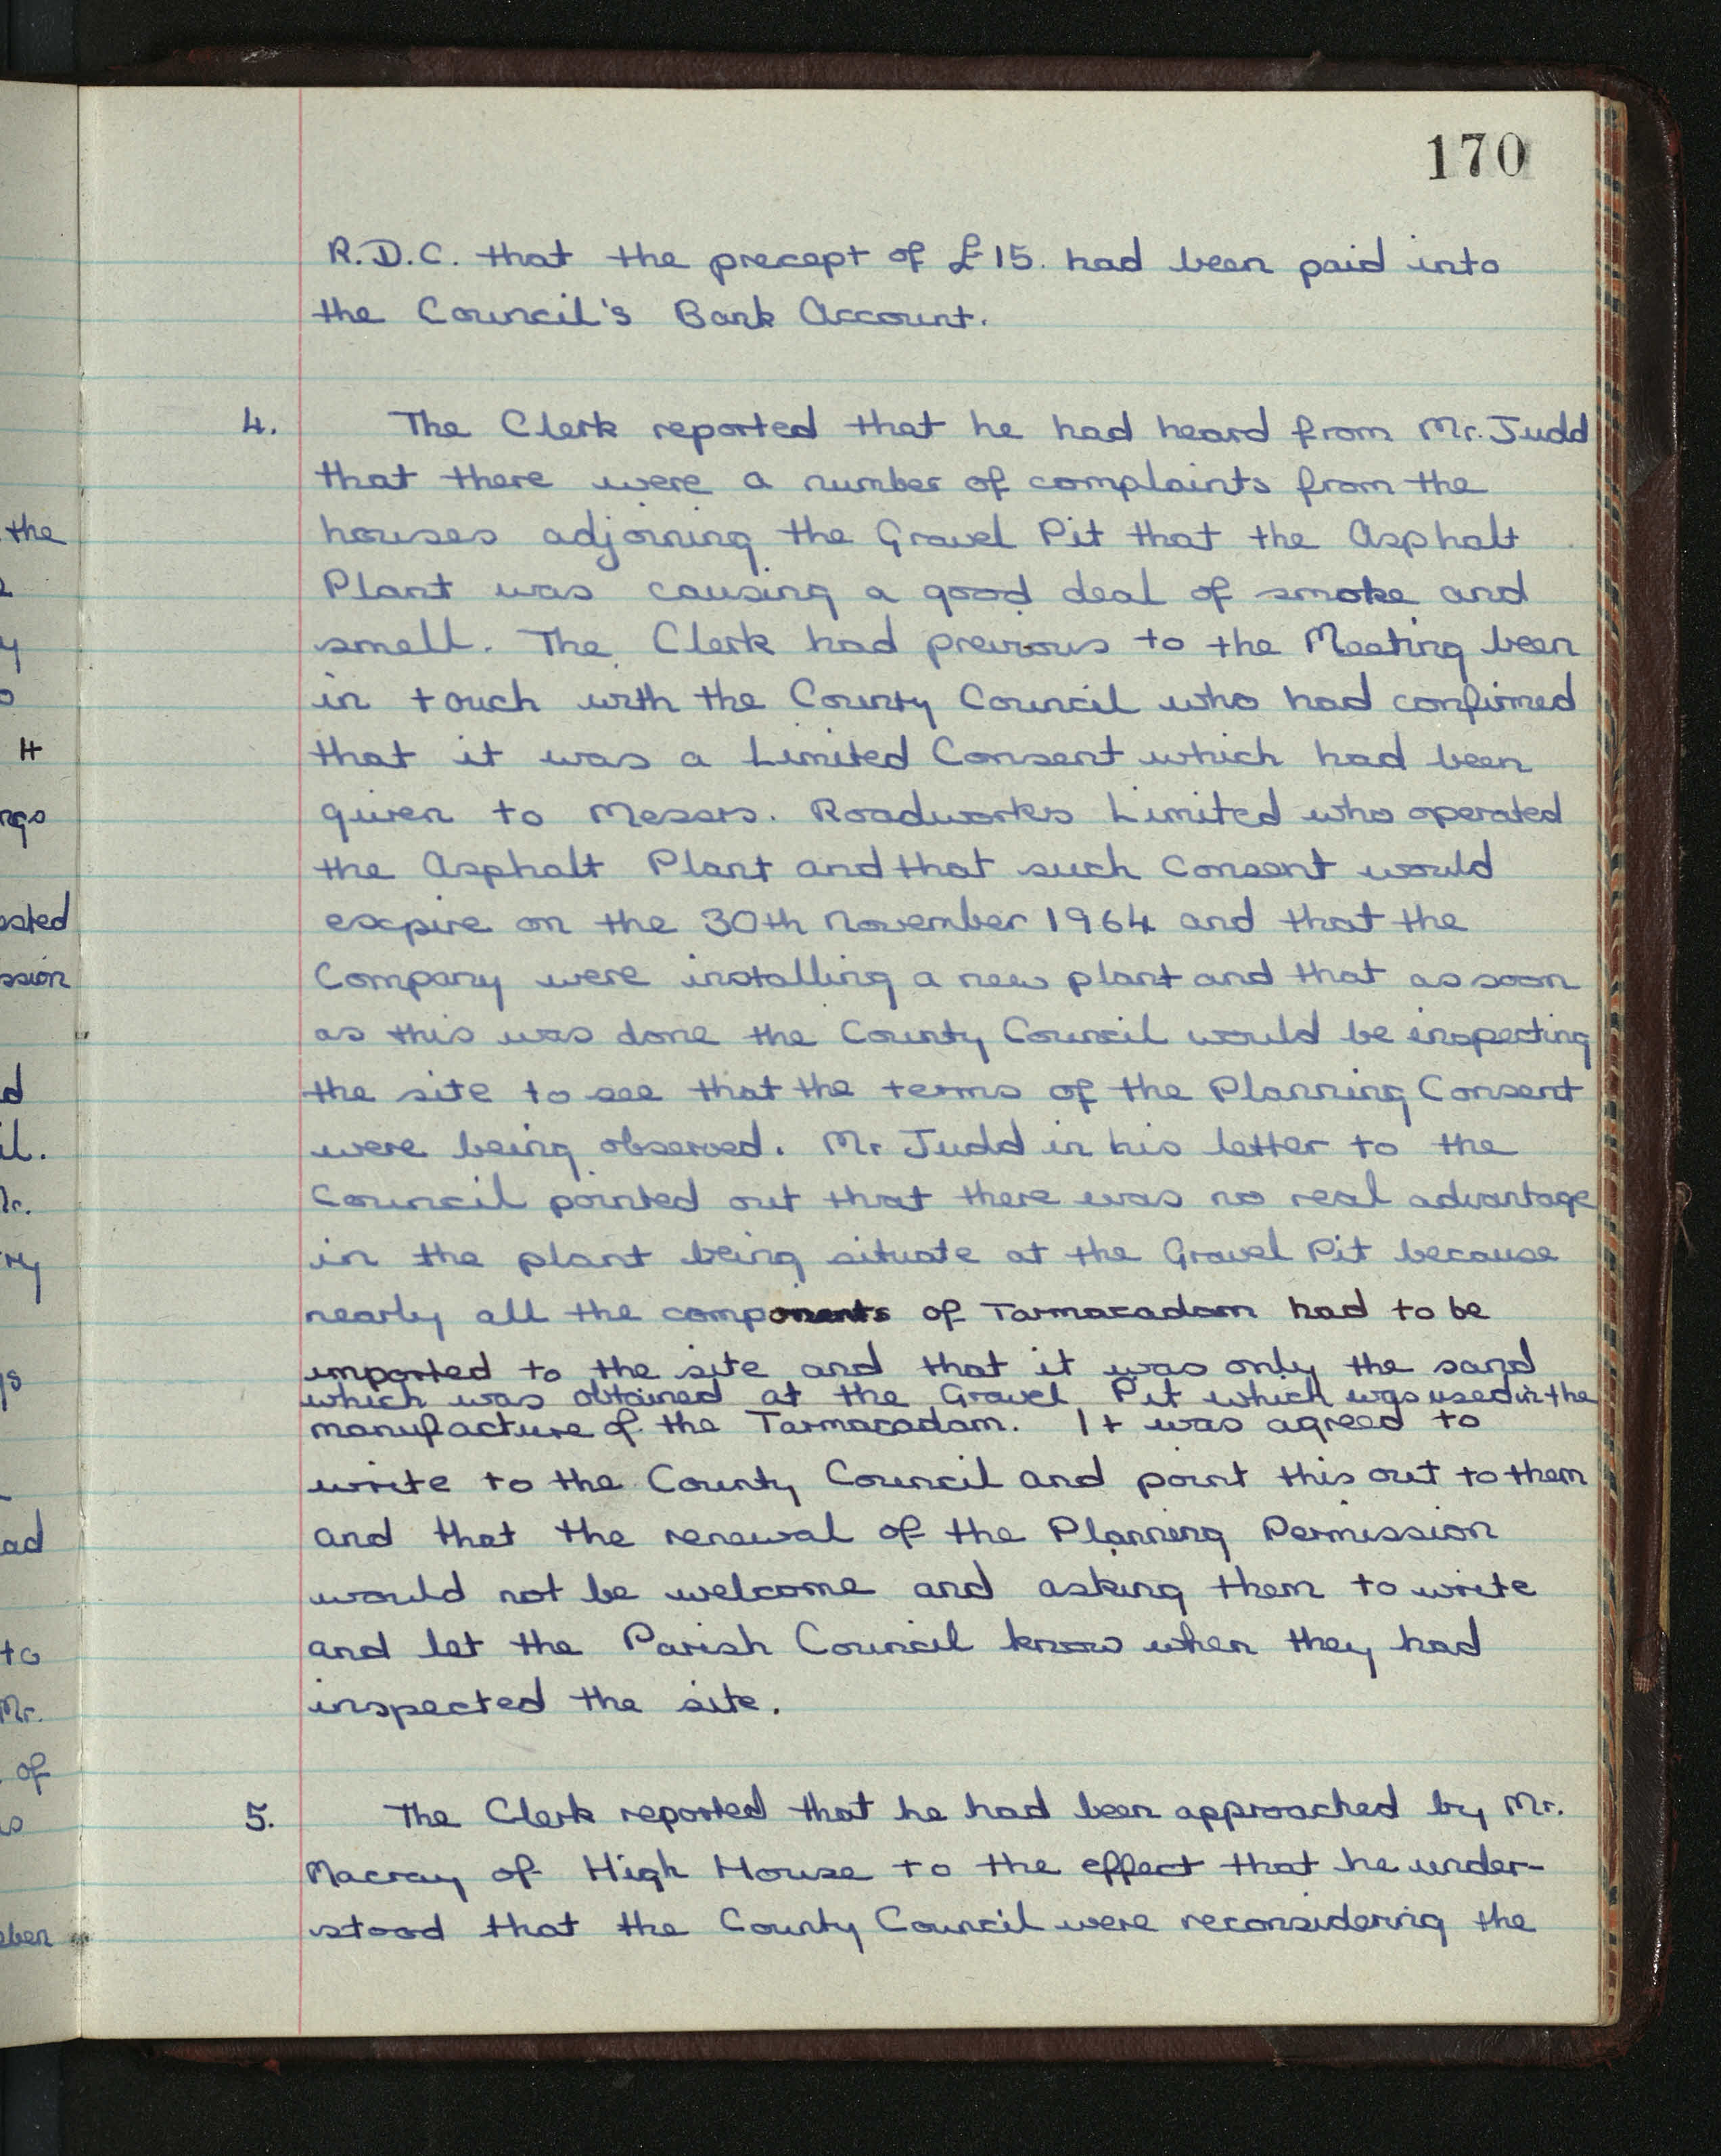 170
R.D.C. that the precept of £15. had been paid into
the Council's Bank Account.
4. The Clerk reported that he had heard from Mr. Judd
that there were a number of complaints from the
houses adjoining the Gravel Pit that the Asphalt
Plant was causing a good deal of smoke and
smell. The Clerk had previous to the Meeting been
in touch with the County Council who had confirmed
that it was a Limited Consent which had been
given to Messrs. Roadworks Limited who operated
the Asphalt Plant and that such Consent would
expire on the 30th November 1964 and that the
Company were installing a new plant and that as soon
as this was done the County Council would be inspecting
the site to see that the terms of the Planning Consent
were being observed. Mr Judd in his letter to the
Council pointed out that there was no real advantage
in the plant being situate at the Gravel Pit because
nearly all the components of Tarmacadam had to be
imported to the site and that it was only the sand
which was obtained at the Gravel Pit which was used in the
manufacture of the Tarmacadam. It was agreed to
write to the County Council and point this out to them
and that the renewal of the Planning Permission
would not be welcome and asking them to write
and let the Parish Council know when they had
inspected the site.
5. The Clerk reported that he had been approached by Mr.
Macray of High House to the effect that he under-
stood that the County Council were reconsidering the